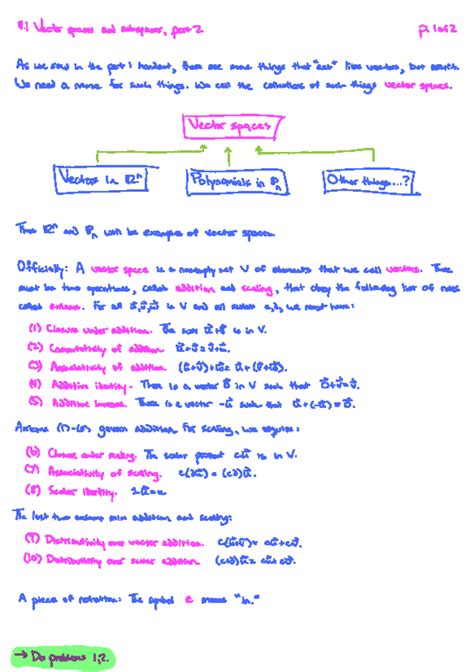 4.1 Vector spaces and subspaces, part 2 p. 1 of 2
As we saw in the part 1 handout, there are some things that "act" like vectors, but aren't.
We need a name for such things. We call the collections of such things vector spaces.
Vector spaces
Vectors in ℝⁿ Polynomials in ℙₙ Other things...?
Thus ℝⁿ and ℙₙ will be examples of vector spaces.
Officially: A vector space is a nonempty set V of elements that we call vectors. There
must be two operations, called addition and scaling, that obey the following list of rules
called axioms. For all u⃗,v⃗,w⃗ in V and all scalars c,d, we must have:
(1) Closure under addition. The sum u⃗+v⃗ is in V.
(2) Commutativity of addition. u⃗+v⃗=v⃗+u⃗.
(3) Associativity of addition. (u⃗+v⃗)+w⃗= u⃗+(v⃗+w⃗).
(4) Additive identity. There is a vector 0⃗ in V such that 0⃗+u⃗=u⃗.
(5) Additive inverse. There is a vector -u⃗ such that u⃗+(-u⃗)=0⃗.
Axioms (1)-(5) govern addition. For scaling, we require:
(6) Closure under scaling. The scalar product cu⃗ is in V.
(7) Associativity of scaling. c(du⃗) = (cd)u⃗.
(8) Scalar identity. 1u⃗=u⃗.
The last two axioms mix addition and scaling:
(9) Distributivity over vector addition. c(u⃗+v⃗)= cu⃗+cv⃗.
(10) Distributivity over scalar addition. (c+d)u⃗= cu⃗+du⃗.
A piece of notation: The symbol ∈ means "in."
→ Do problems 1,2.